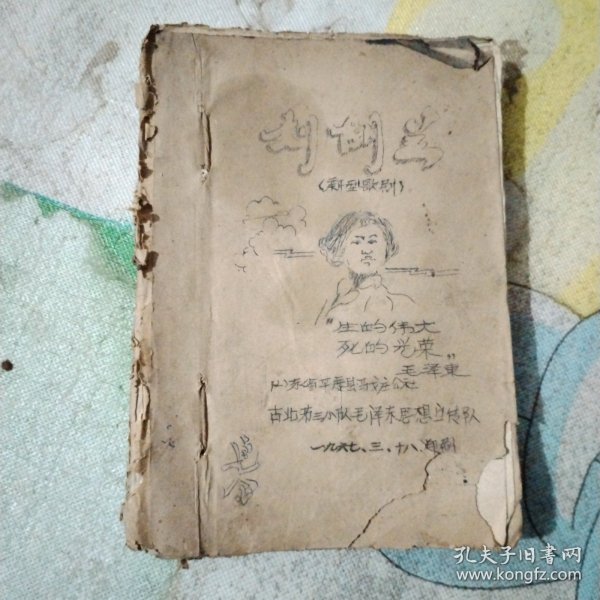 刘胡兰
（新型歌剧）
“生的伟大
死的光荣”
毛泽东
山东省平度县
古北第三小队毛泽东思想宣传队
一九六七、三、十八、印刷
孔夫子旧书网
www.kongfz.com